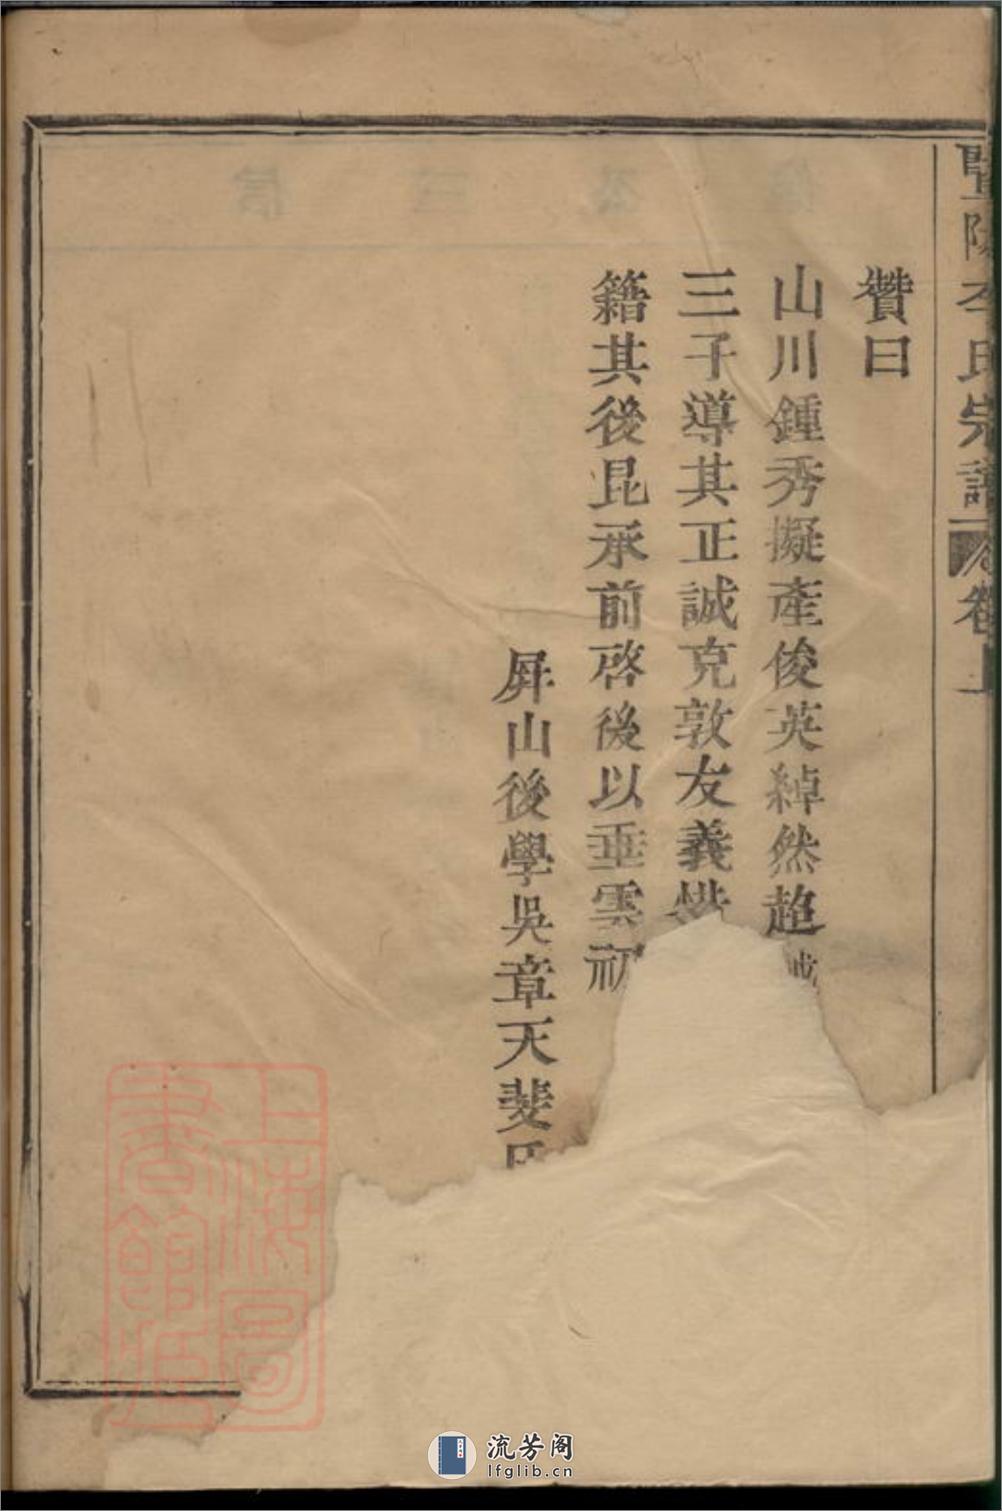 暨陽李氏宗譜 卷上
贊曰
山川鍾秀擬產俊英綽然超
三子導其正誠克敦友義
籍其後昆承前啓後以垂雲礽
屏山後學吳章天斐氏
上海圖書館藏
流芳阁
lfglib.cn